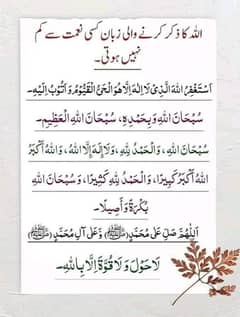 اللہ کا ذکر کرنے والی زبان کسی نعمت سے کم
نہیں ہوتی۔
اَسْتَغْفِرُ اللهَ الَّذِىْ لَا اِلٰهَ اِلَّا هُوَ الْحَىُّ الْقَيُّوْمُ وَ اَتُوْبُ اِلَيْهِ۔
سُبْحَانَ اللهِ وَبِحَمْدِهٖ، سُبْحَانَ اللهِ الْعَظِيْمِ۔
سُبْحَانَ اللهِ، وَالْحَمْدُ لِلّٰهِ، وَلَا اِلٰهَ اِلَّا اللهُ، وَاللهُ اَكْبَرُ
اللهُ اَكْبَرُ كَبِيْرًا، وَالْحَمْدُ لِلّٰهِ كَثِيْرًا، وَسُبْحَانَ اللهِ
بُكْرَةً وَّاَصِيْلًا۔
اَللّٰهُمَّ صَلِّ عَلٰى مُحَمَّدٍ (ﷺ) وَّعَلٰى آلِ مُحَمَّدٍ (ﷺ)
لَا حَوْلَ وَ لَا قُوَّةَ اِلَّا بِاللهِ۔